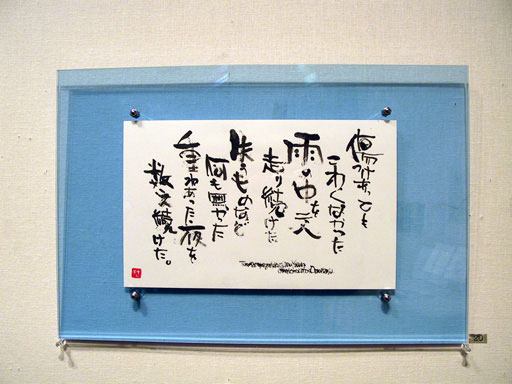 傷つけあっても
こわくなかった
雨の中を二人
走り続けた
失うものなど
何も無かった
重ねあった夜を
数え続けた。
20